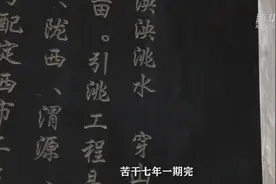 泱泱洮水 穿山
亩。引洮工程
陇西、渭源、
配定西市
苦干七年一期完